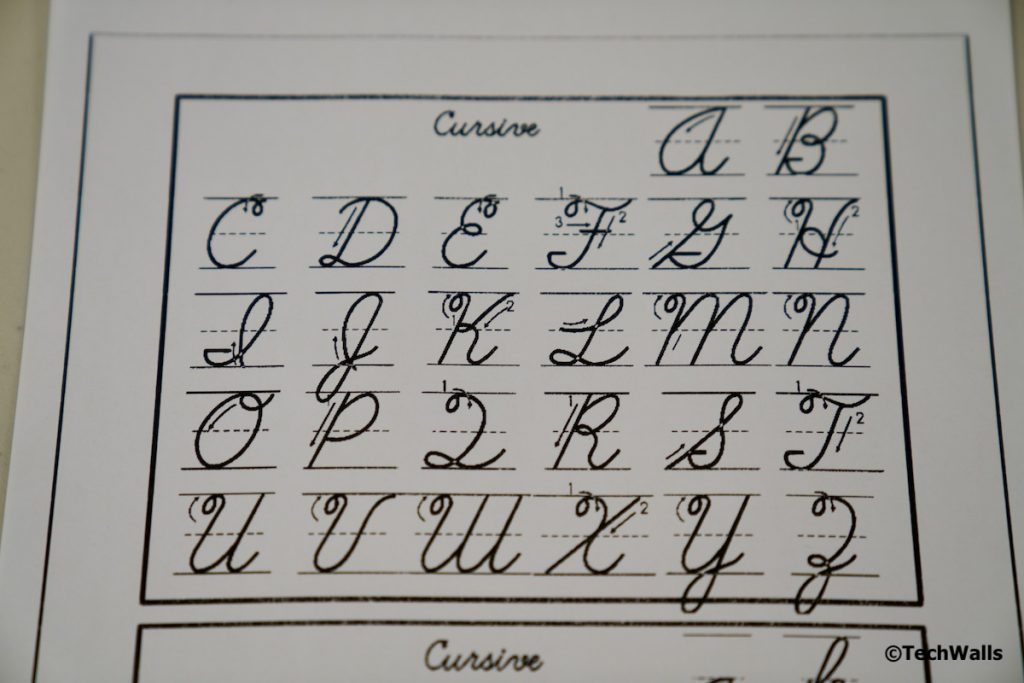 Cursive A B
C D E F G H
I J K L M N
O P Q R S T
U V W X Y Z
Cursive
©TechWalls